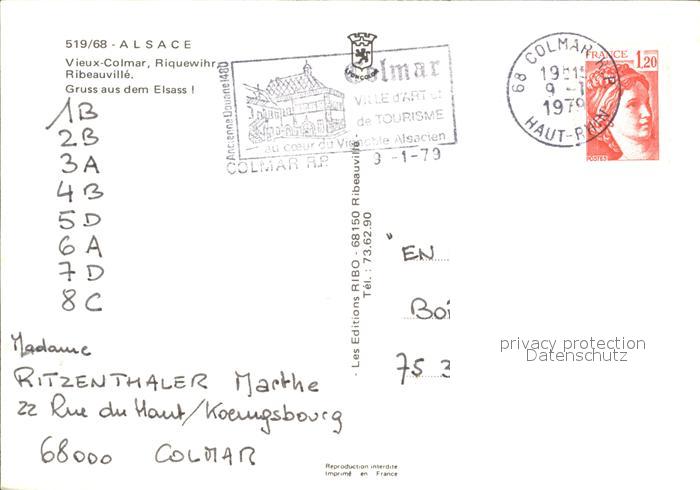 519/68 - ALSACE
Vieux-Colmar, Riquewihr
Ribeauvillé.
Gruss aus dem Elsass !
1B
2B
3A
4B
5D
6A
7D
8C
Madame
RITZENTHALER Marthe
22 Rue du Haut/Koenigsbourg
68000 COLMAR
Ancienne Douane 1480
Colmar
VILLE d'ART et
de TOURISME
au cœur du Vignoble Alsacien
COLMAR R.P. 9 -1-79
- Les Editions RIBO - 68150 Ribeauvillé -
Tél. : 73.62.90
Reproduction interdite
Imprimé en France
68 COLMAR R.P.
9 -1
1979
HAUT-RHIN
FRANCE
1,20
POSTES
" EN
Boi
75 3
privacy protection
Datenschutz